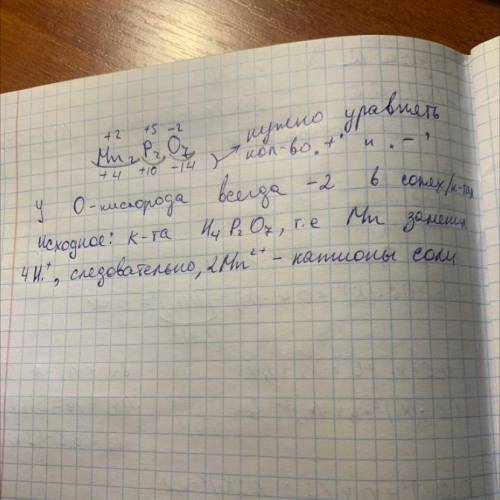 +2 +5 -2
Mn₂ P₂ O₇ → нужно уравнять
+4 +10 -14 кол-во „+" и „-"
У О-кислорода всегда -2 в солях/к-тах
Исходное: к-та H₄P₂O₇, т.е Mn заменил
4H⁺, следовательно, 2Mn²⁺ - катионы соли